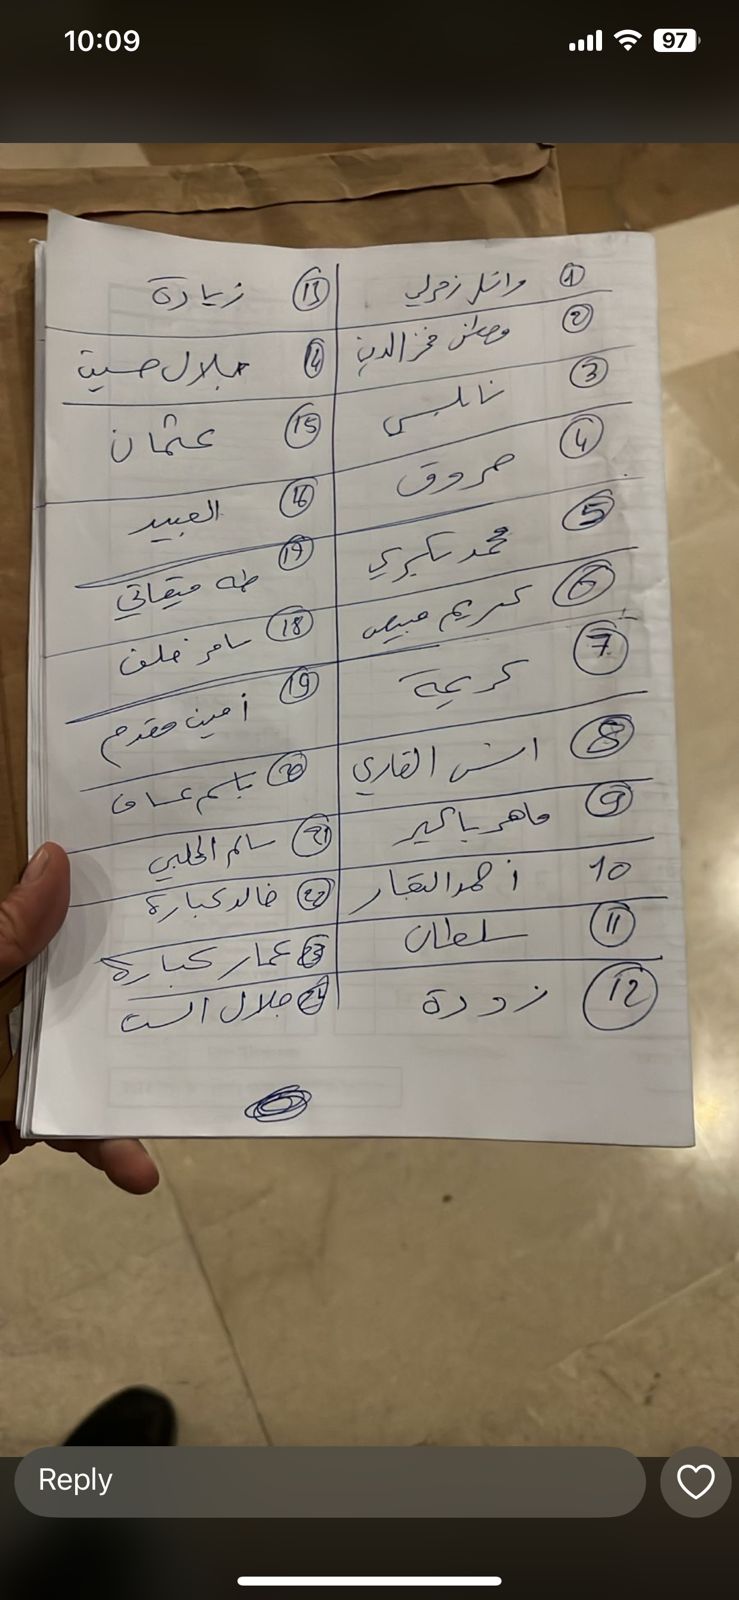 10:09
97
① وائل زمرلي
② وصفي فخر الدين
③ نابلسي
④ حروق
⑤ محمد سكري
⑥ كريم مبيض
⑦ كريمة
⑧ انس القاري
⑨ ماهر باكير
10 أحمد النجار
⑪ سلطان
⑫ زودة
⑬ زيادة
⑭ جلال حسين
⑮ عثمان
⑯ العبيد
⑲ طه ميقاتي
⑱ سامر خلف
⑲ أمين مقدم
⑳ باسم عساف
㉑ سالم الحلبي
㉒ خالد كبارة
㉓ عمار كبارة
㉔ جلال الست
Reply